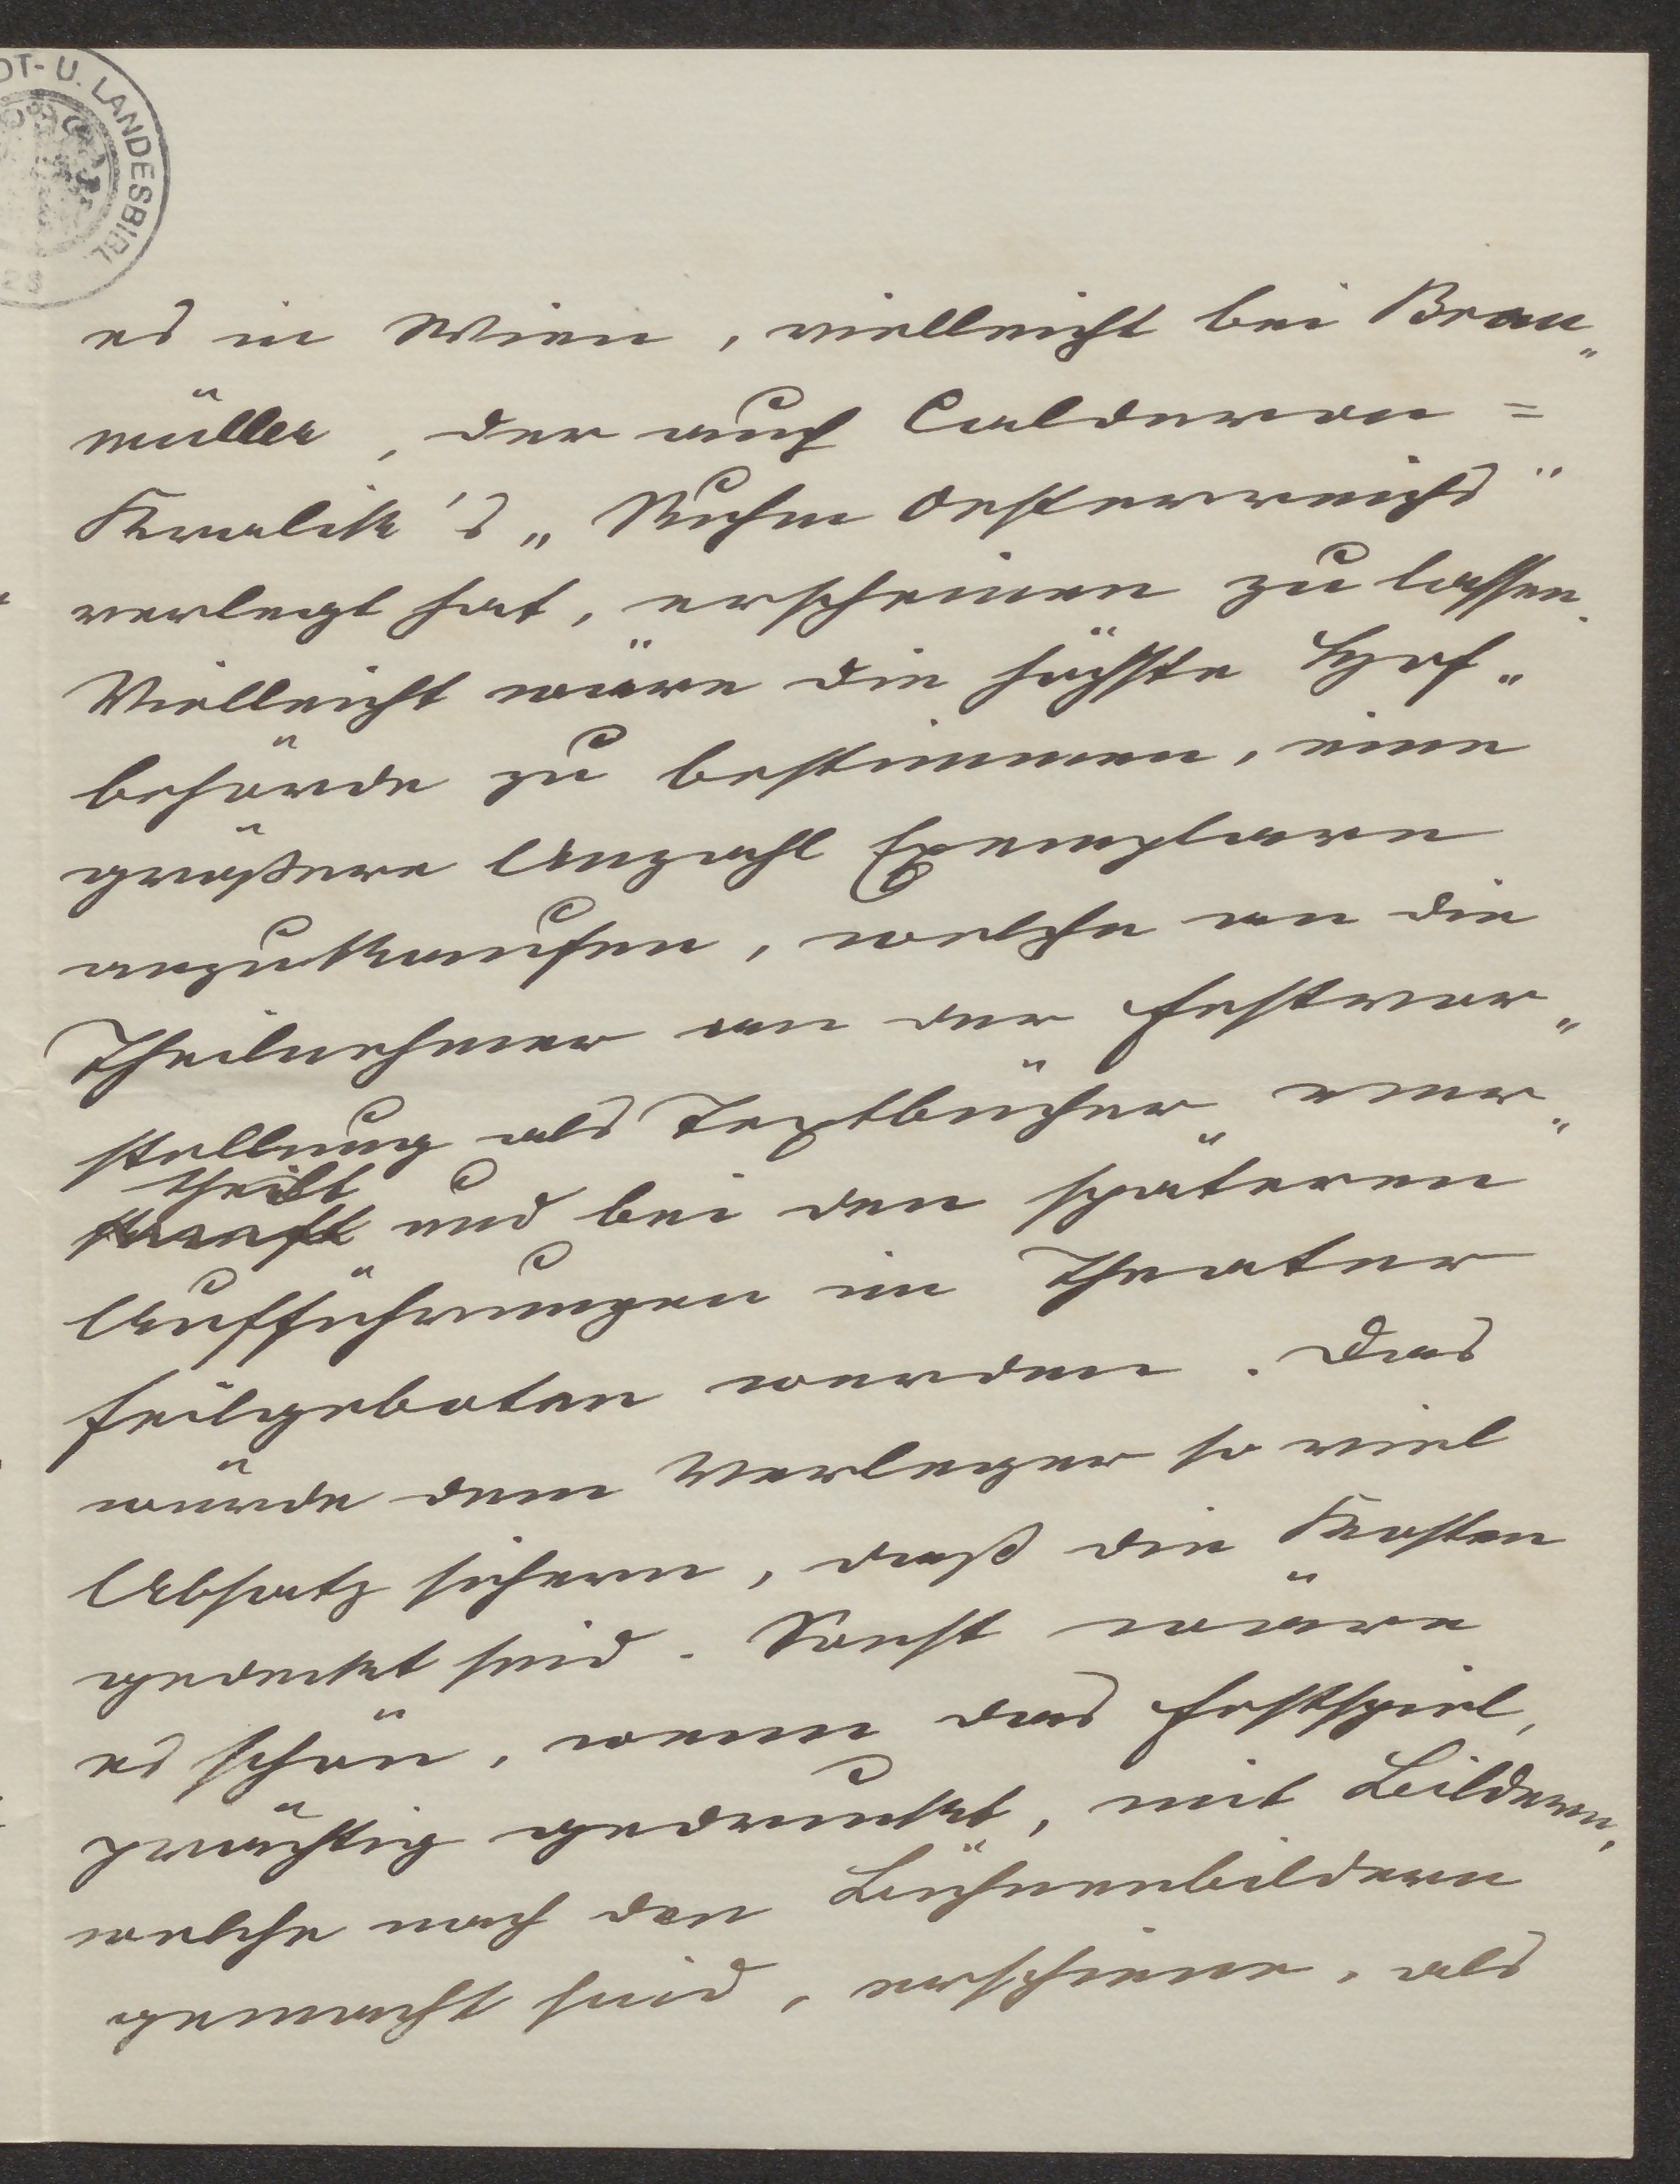 DT- U. LANDESBIBL
28
es in Wien, vielleicht bei Brau„
müller, der auch Calderon =
Kralik's „Ruhm Oesterreichs"
verlegt hat, erscheinen zu lassen.
Vielleicht wäre die höchste Hof„
behörde zu bestimmen, eine
größere Anzahl Exemplare
anzukaufen, welche an die
Theilnehmer an der Festvor„
stellung als Textbücher ver„
theilt
und bei den späteren
Aufführungen im Theater
feilgeboten werden. Das
würde dem Verleger so viel
Absatz sichern, daß die Kosten
gedeckt sind. Sonst wäre
es schön, wenn das Festspiel,
prächtig gedruckt, mit Bildern,
welche nach den Bühnenbildern
gemacht sind, erschiene, als